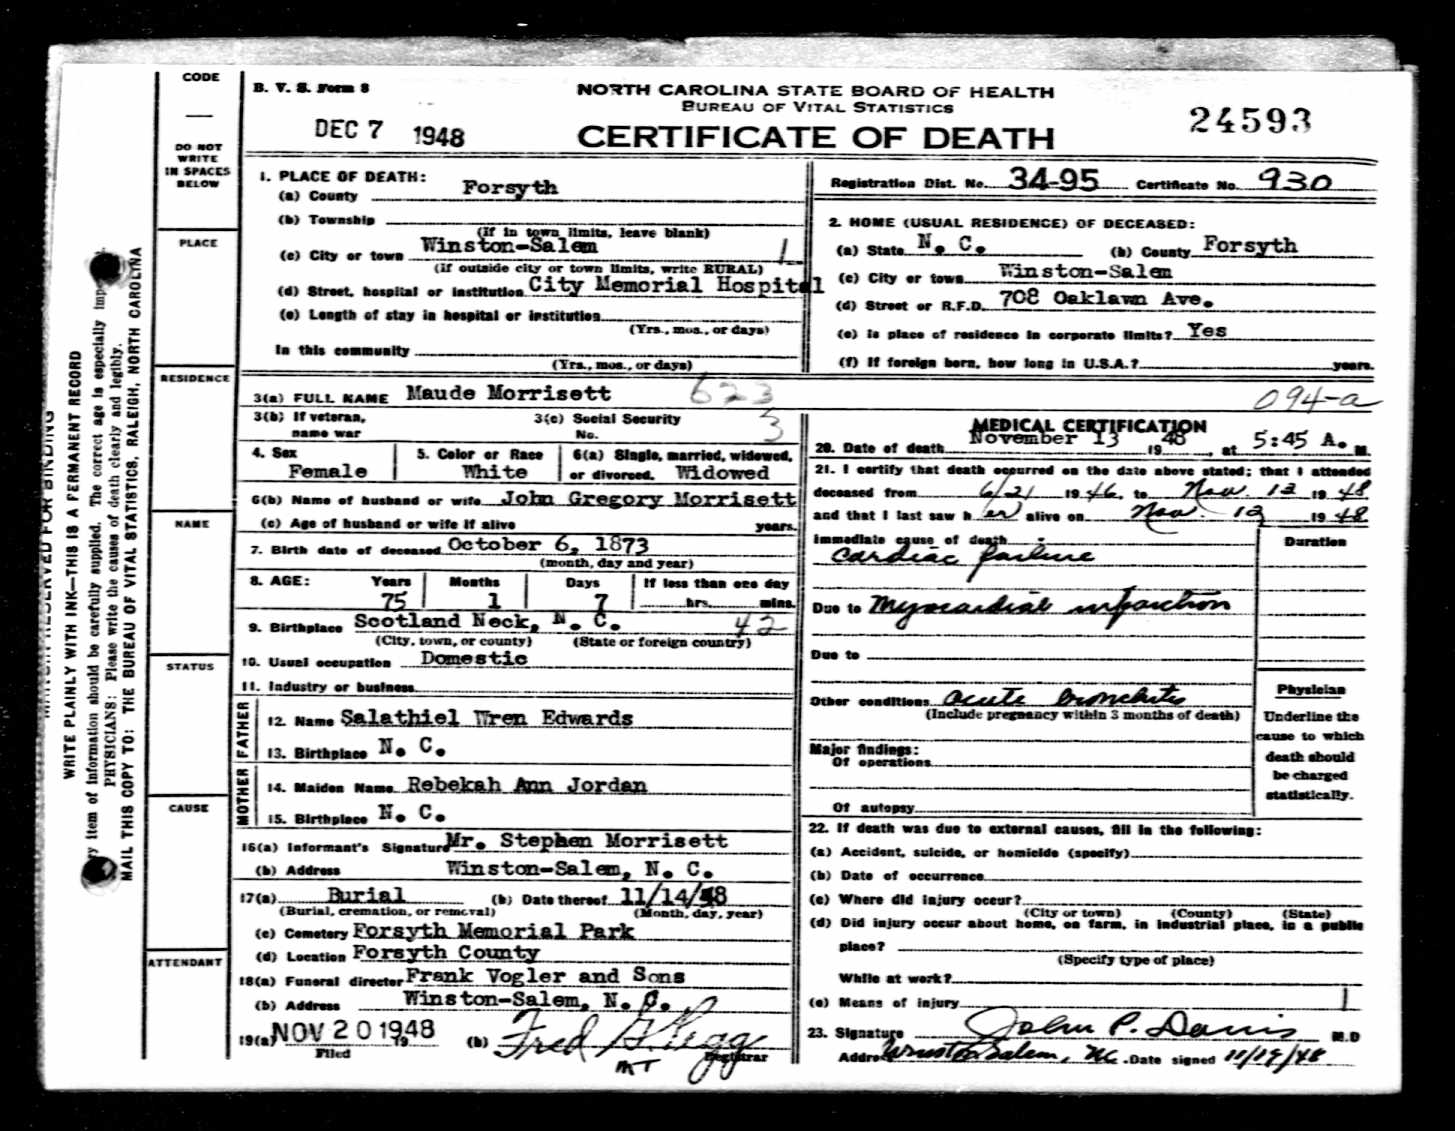 CODE
DO NOT
WRITE
IN SPACES
BELOW
PLACE
RESIDENCE
NAME
STATUS
CAUSE
ATTENDANT
WRITE PLAINLY WITH INK—THIS IS A PERMANENT RECORD
item of information should be carefully supplied. The correct age is especially
PHYSICIANS: Please write the causes of death clearly and legibly.
MAIL THIS COPY TO: THE BUREAU OF VITAL STATISTICS, RALEIGH, NORTH CAROLINA
B. V. S. Form 8
NORTH CAROLINA STATE BOARD OF HEALTH
BUREAU OF VITAL STATISTICS
DEC 7 1948
CERTIFICATE OF DEATH
24593
1. PLACE OF DEATH:
(a) County Forsyth
(b) Township
(If in town limits, leave blank)
(c) City or town Winston-Salem 1
(If outside city or town limits, write RURAL)
(d) Street, hospital or institution City Memorial Hospital
(e) Length of stay in hospital or institution
(Yrs., mos., or days)
In this community
(Yrs., mos., or days)
Registration Dist. No. 34-95 Certificate No. 930
2. HOME (USUAL RESIDENCE) OF DECEASED:
(a) State N. C. (b) County Forsyth
(c) City or town Winston-Salem
(d) Street or R.F.D. 708 Oaklawn Ave.
(e) Is place of residence in corporate limits? Yes
(f) If foreign born, how long in U.S.A.? years.
3(a) FULL NAME Maude Morrisett 623
094-a
3(b) If veteran, name war
3(c) Social Security No. 3
4. Sex Female
5. Color or Race White
6(a) Single, married, widowed, or divorced. Widowed
6(b) Name of husband or wife John Gregory Morrisett
(c) Age of husband or wife if alive years.
7. Birth date of deceased October 6, 1873
(month, day and year)
8. AGE: Years Months Days If less than one day
75 1 7 hrs. mins.
9. Birthplace Scotland Neck, N. C. 42
(City, town, or county) (State or foreign country)
10. Usual occupation Domestic
11. Industry or business
FATHER
12. Name Salathiel Wren Edwards
13. Birthplace N. C.
MOTHER
14. Maiden Name Rebekah Ann Jordan
15. Birthplace N. C.
16(a) Informant's Signature Mr. Stephen Morrisett
(b) Address Winston-Salem, N. C.
17(a) Burial (b) Date thereof 11/14/48
(Burial, cremation, or removal) (Month, day, year)
(c) Cemetery Forsyth Memorial Park
(d) Location Forsyth County
18(a) Funeral director Frank Vogler and Sons
(b) Address Winston-Salem, N. C.
19(a) NOV 20 1948 19 (b) Fred G Pegg
Filed Registrar
MT
MEDICAL CERTIFICATION
20. Date of death November 13 1948, at 5:45 A. M.
21. I certify that death occurred on the date above stated; that I attended
deceased from 6/21 1946, to Nov. 13 1948
and that I last saw her alive on Nov. 12 1948
Immediate cause of death Duration
Cardiac failure
Due to Myocardial infarction
Due to
Other conditions acute bronchitis
(Include pregnancy within 3 months of death)
Physician
Underline the
cause to which
death should
be charged
statistically.
Major findings:
Of operations
Of autopsy
22. If death was due to external causes, fill in the following:
(a) Accident, suicide, or homicide (specify)
(b) Date of occurrence
(c) Where did injury occur?
(City or town) (County) (State)
(d) Did injury occur about home, on farm, in industrial place, in a public
place?
(Specify type of place)
While at work?
(e) Means of injury 1
23. Signature John P. Davis M.D
Address Winston Salem, NC. Date signed 11/19/48